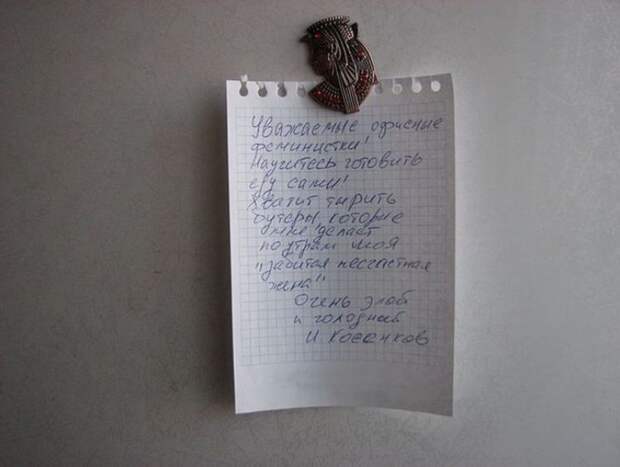 Уважаемые офисные
феминистки!
Научитесь готовить
еду сами!
Хватит тырить
бутеры, которые
мне делает
по утрам моя
"забитая несчастная
жена"!
Очень злой
и голодный
И. Косенков